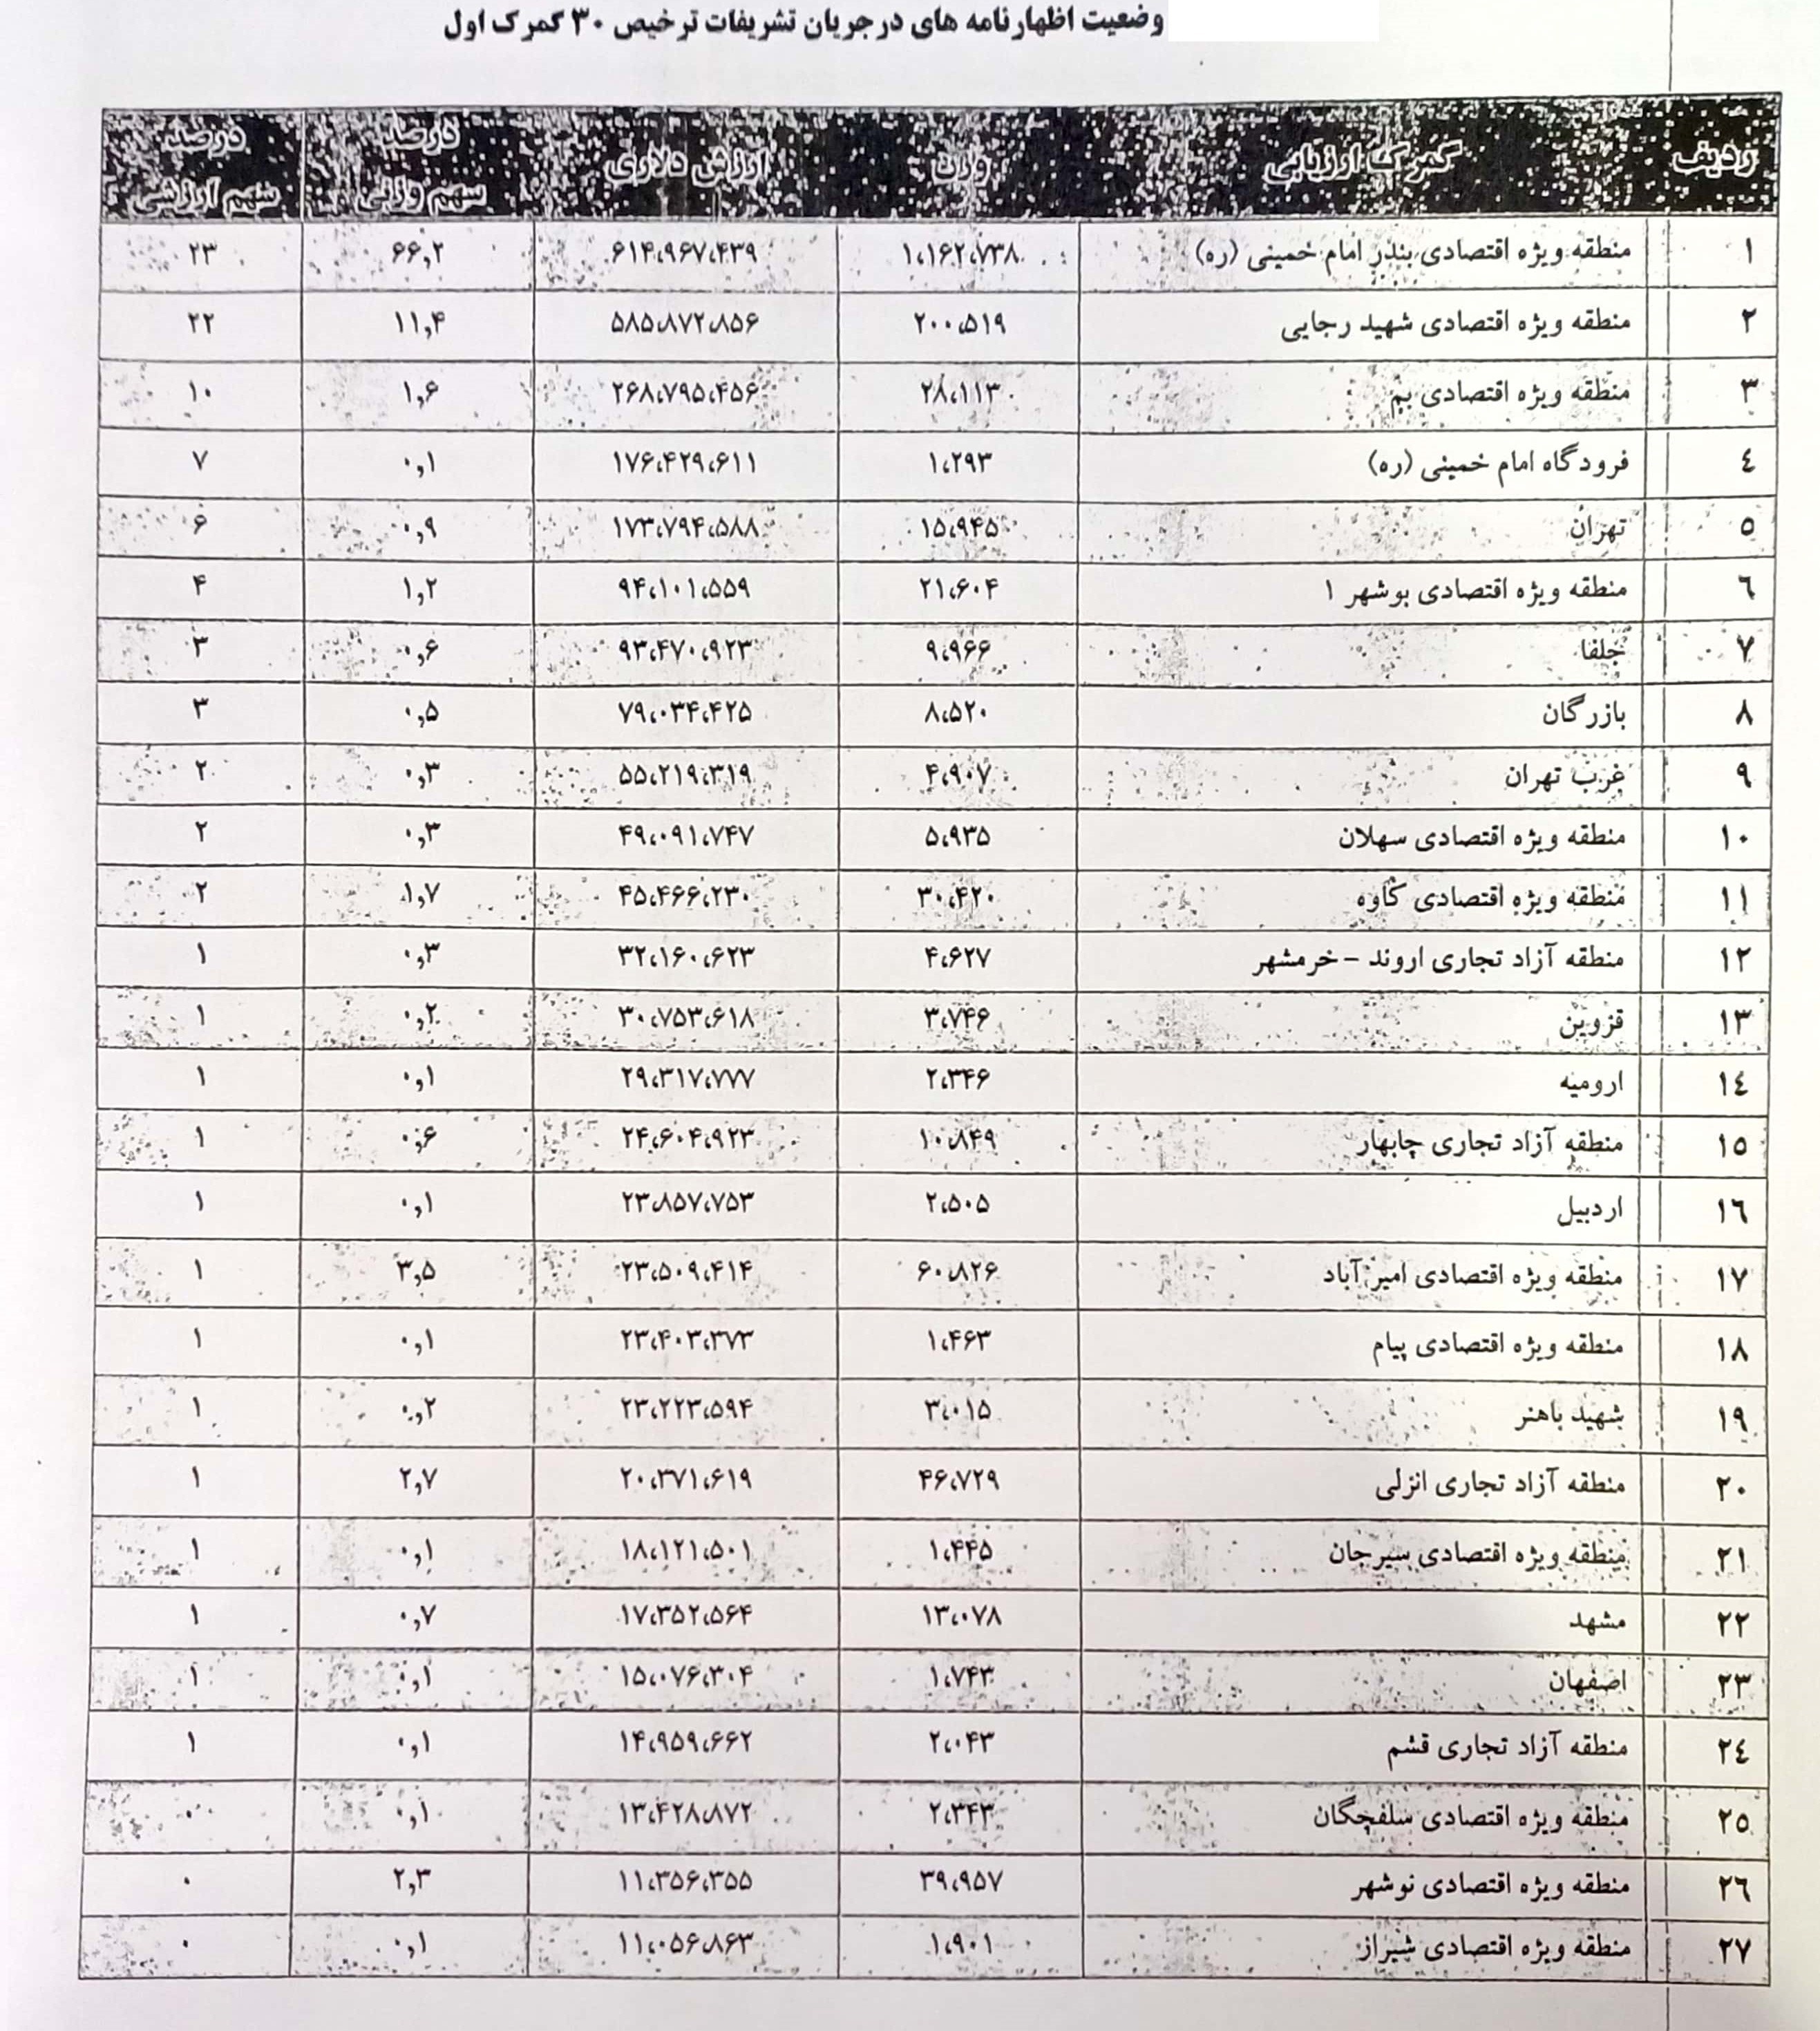 وضعیت اظهارنامه های در جریان تشریفات ترخیص ۳۰ گمرک اول
ردیف گمرک ارزیابی وزن ارزش دلاری درصد سهم وزنی درصد سهم ارزشی
۱ منطقه ویژه اقتصادی بندر امام خمینی (ره) ۱،۱۶۲،۷۳۸ ۶۱۴،۹۶۷،۴۳۹ ۶۶,۲ ۲۳
۲ منطقه ویژه اقتصادی شهید رجایی ۲۰۰،۵۱۹ ۵۸۵،۸۷۲،۸۵۶ ۱۱,۴ ۲۲
۳ منطقه ویژه اقتصادی بم ۲۸،۱۱۳ ۲۶۸،۷۹۵،۴۵۶ ۱,۶ ۱۰
٤ فرودگاه امام خمینی (ره) ۱،۲۹۳ ۱۷۶،۴۲۹،۶۱۱ ۰,۱ ۷
٥ تهران ۱۵،۹۴۵ ۱۷۳،۷۹۴،۵۸۸ ۰,۹ ۶
٦ منطقه ویژه اقتصادی بوشهر ۱ ۲۱،۶۰۴ ۹۴،۱۰۱،۵۵۹ ۱,۲ ۴
۷ جلفا ۹،۹۶۶ ۹۳،۴۷۰،۹۲۳ ۰,۶ ۳
۸ بازرگان ۸،۵۲۰ ۷۹،۰۳۴،۴۲۵ ۰,۵ ۳
۹ غرب تهران ۴،۹۰۷ ۵۵،۲۱۹،۳۱۹ ۰,۳ ۲
۱۰ منطقه ویژه اقتصادی سهلان ۵،۹۳۵ ۴۹،۰۹۱،۷۴۷ ۰,۳ ۲
۱۱ منطقه ویژه اقتصادی کاوه ۳۰،۴۲۰ ۴۵،۴۶۶،۲۳۰ ۱,۷ ۲
۱۲ منطقه آزاد تجاری اروند – خرمشهر ۴،۶۲۷ ۳۲،۱۶۰،۶۲۳ ۰,۳ ۱
۱۳ قزوین ۳،۷۴۶ ۳۰،۷۵۳،۶۱۸ ۰,۲ ۱
۱٤ ارومیه ۲،۳۴۶ ۲۹،۳۱۷،۷۷۷ ۰,۱ ۱
۱٥ منطقه آزاد تجاری چابهار ۱۰،۸۴۹ ۲۴،۶۰۴،۹۲۳ ۰,۶ ۱
۱٦ اردبیل ۲،۵۰۵ ۲۳،۸۵۷،۷۵۳ ۰,۱ ۱
۱۷ منطقه ویژه اقتصادی امیرآباد ۶۰،۸۲۶ ۲۳،۵۰۹،۴۱۴ ۳,۵ ۱
۱۸ منطقه ویژه اقتصادی پیام ۱،۴۶۳ ۲۳،۴۰۳،۳۷۳ ۰,۱ ۱
۱۹ شهید باهنر ۳،۰۱۵ ۲۳،۲۲۳،۵۹۴ ۰,۲ ۱
۲۰ منطقه آزاد تجاری انزلی ۴۶،۷۲۹ ۲۰،۳۷۱،۶۱۹ ۲,۷ ۱
۲۱ منطقه ویژه اقتصادی سیرجان ۱،۴۴۵ ۱۸،۱۲۱،۵۰۱ ۰,۱ ۱
۲۲ مشهد ۱۳،۰۷۸ ۱۷،۳۵۲،۵۶۴ ۰,۷ ۱
۲۳ اصفهان ۱،۷۴۳ ۱۵،۰۷۶،۳۰۴ ۰,۱ ۱
۲٤ منطقه آزاد تجاری قشم ۲،۰۴۳ ۱۴،۹۵۹،۶۶۲ ۰,۱ ۱
۲٥ منطقه ویژه اقتصادی سلفچگان ۲،۳۴۳ ۱۳،۴۲۸،۸۷۲ ۰,۱ ۰
۲٦ منطقه ویژه اقتصادی نوشهر ۳۹،۹۵۷ ۱۱،۳۵۶،۳۵۵ ۲,۳ ۰
۲۷ منطقه ویژه اقتصادی شیراز ۱،۹۰۱ ۱۱،۰۵۶،۸۶۳ ۰,۱ ۰